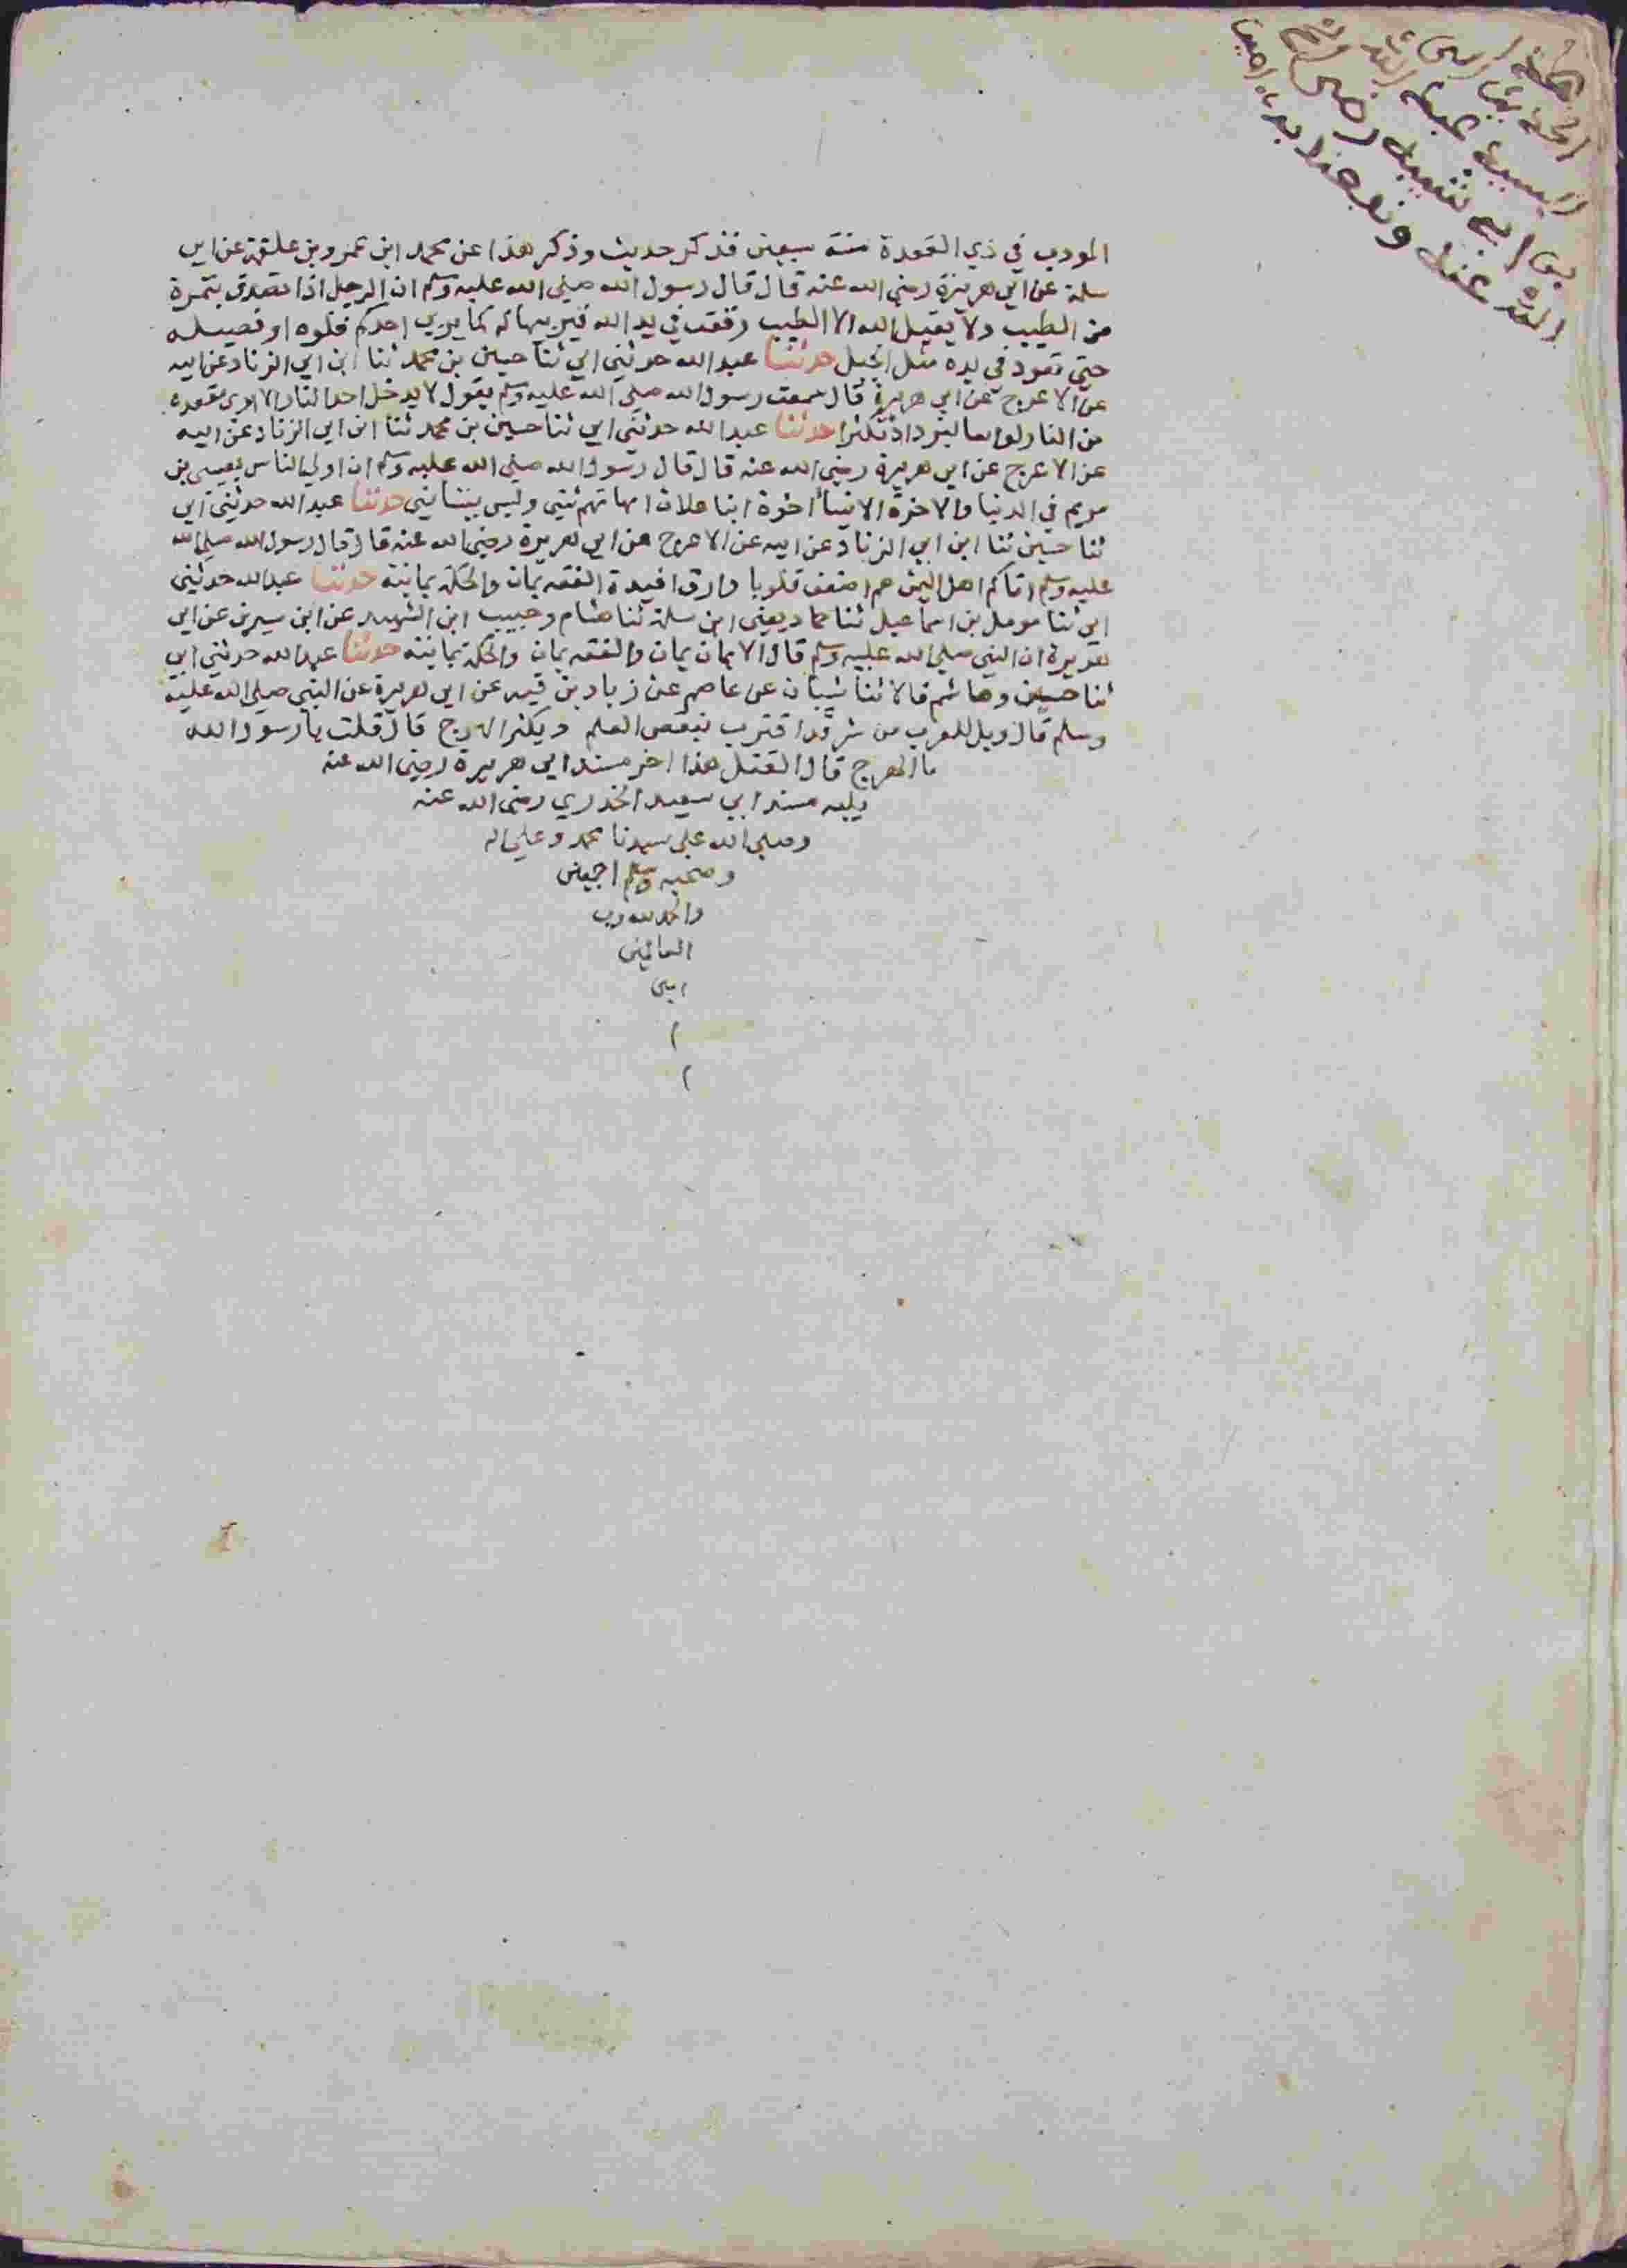 المودب في ذي القعدة سنة سبعين فذكر حديث وذكر هذا عن محمد ابن عمرو بن علقمة عن ابي
سلمة عن ابي هريرة رضي الله عنه قال قال رسول الله صلي الله عليه وسلم ان الرجل اذا تصدق بتمرة
من الطيب ولا يقبل الله الا الطيب وقعت في يد الله فيربيها له كما يربي احدكم فلوه او فصيله
حتي تعود في يده مثل الجبل حدثنا عبد الله حدثني ابي ثنا حسين بن محمد ثنا ابن ابي الزناد عن ابيه
عن الاعرج عن ابي هريرة قال سمعت رسول الله صلي الله عليه وسلم يقول لا يدخل احد النار الا اري مقعده
من النار لو اسا ليزداد تكثرا حدثنا عبد الله حدثني ابي ثنا حسين بن محمد ثنا ابن ابي الزناد عن ابيه
عن الاعرج عن ابي هريرة رضي الله عنه قال قال رسول الله صلي الله عليه وسلم ان اولي الناس بعيسي بن
مريم في الدنيا والاخرة الانبيا اخوة ابنا علات امهاتهم شتي وليس بيننا نبي حدثنا عبد الله حدثني ابي
ثنا حسين ثنا ابن ابي الزناد عن ابيه عن الاعرج عن ابي هريرة رضي الله عنه قال قال رسول الله صلي الله
عليه وسلم اتاكم اهل اليمن هم اضعف قلوبا وارق افيدة الفقه يمان والحكمة يمانية حدثنا عبد الله حدثني
ابي ثنا مومل بن اسماعيل ثنا حماد يعني ابن سلمة ثنا هشام وحبيب ابن الشهيد عن ابن سيرين عن ابي
هريرة ان النبي صلي الله عليه وسلم قال الايمان يمان والفقه يمان والحكمة يمانية حدثنا عبد الله حدثني ابي
ثنا حسين وهاشم قالا ثنا شيبان عن عاصم عن زياد بن قيس عن ابي هريرة عن النبي صلي الله عليه
وسلم قال ويل للعرب من شر قد اقترب ينقص العلم ويكثر الهرج قال قلت يا رسول الله
ما الهرج قال القتل هذا اخر مسند ابي هريرة رضي الله عنه
يليه مسند ابي سعيد الخدري رضي الله عنه
وصلي الله علي سيدنا محمد وعلي اله
وصحبه وسلم اجمعين
والحمد لله رب
العالمين
امين
م
م